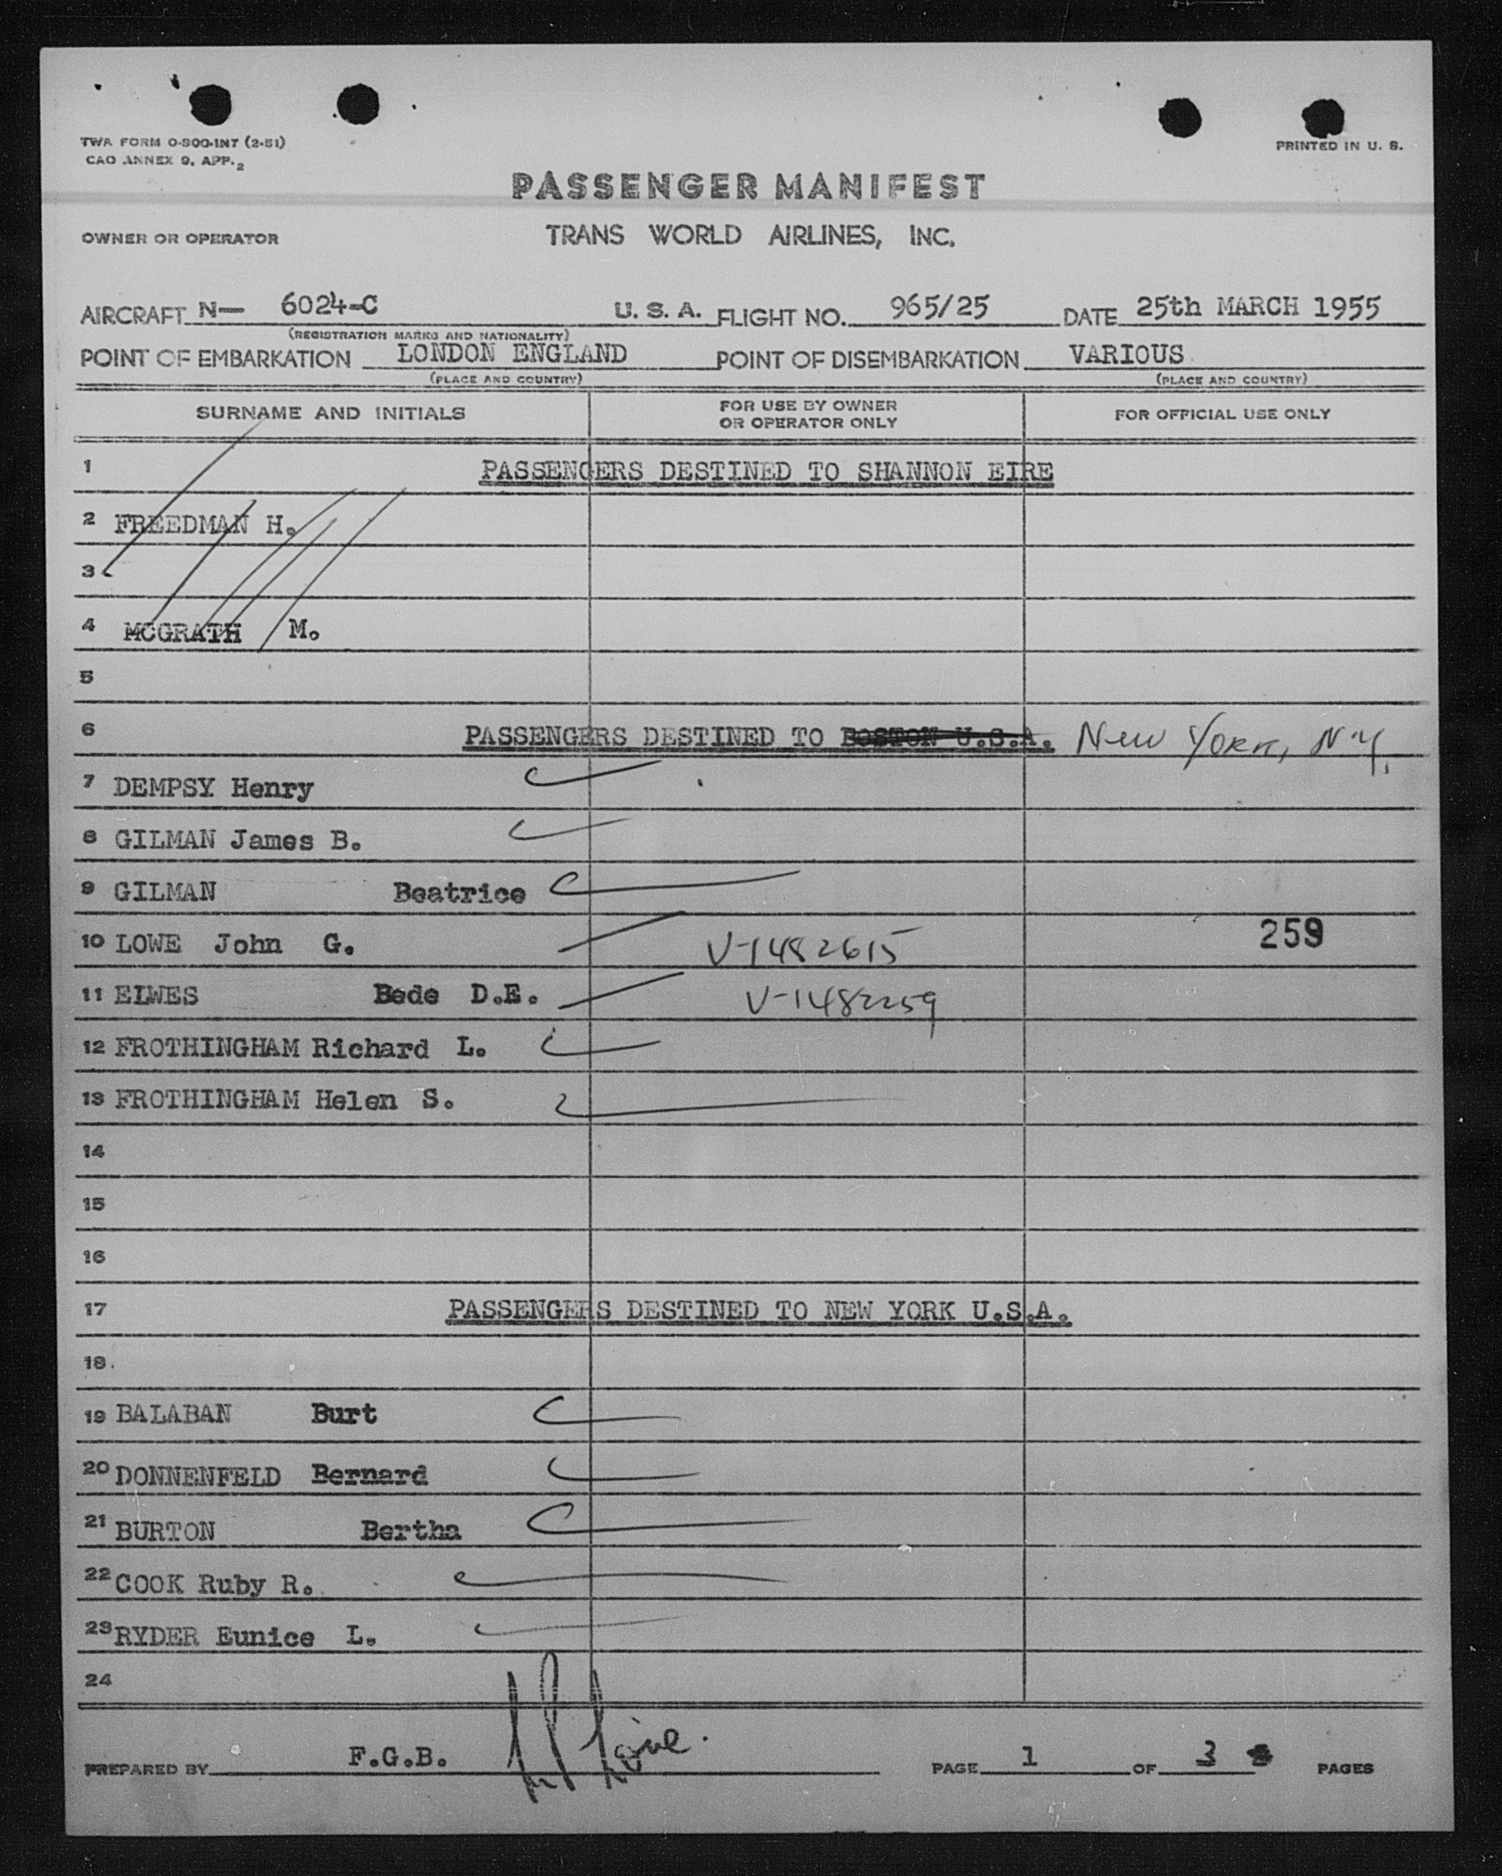 TWA FORM O-800-INT (2-51)
CAO ANNEX 9, APP. 2
PRINTED IN U. S.
PASSENGER MANIFEST
OWNER OR OPERATOR TRANS WORLD AIRLINES, INC.
AIRCRAFT N— 6024-C U. S. A. FLIGHT NO. 965/25 DATE 25th MARCH 1955
(REGISTRATION MARKS AND NATIONALITY)
POINT OF EMBARKATION LONDON ENGLAND POINT OF DISEMBARKATION VARIOUS
(PLACE AND COUNTRY) (PLACE AND COUNTRY)
SURNAME AND INITIALS FOR USE BY OWNER OR OPERATOR ONLY FOR OFFICIAL USE ONLY
1 PASSENGERS DESTINED TO SHANNON EIRE
2 FREEDMAN H.
3
4 MCGRATH M.
5
6 PASSENGERS DESTINED TO BOSTON U.S.A. New York, NY.
7 DEMPSY Henry
8 GILMAN James B.
9 GILMAN Beatrice
10 LOWE John G. V-1482615 259
11 ELWES Bede D.E. V-1482259
12 FROTHINGHAM Richard L.
13 FROTHINGHAM Helen S.
14
15
16
17 PASSENGERS DESTINED TO NEW YORK U.S.A.
18.
19 BALABAN Burt
20 DONNENFELD Bernard
21 BURTON Bertha
22 COOK Ruby R.
23 RYDER Eunice L.
24
PREPARED BY F.G.B. PAGE 1 OF 3 PAGES